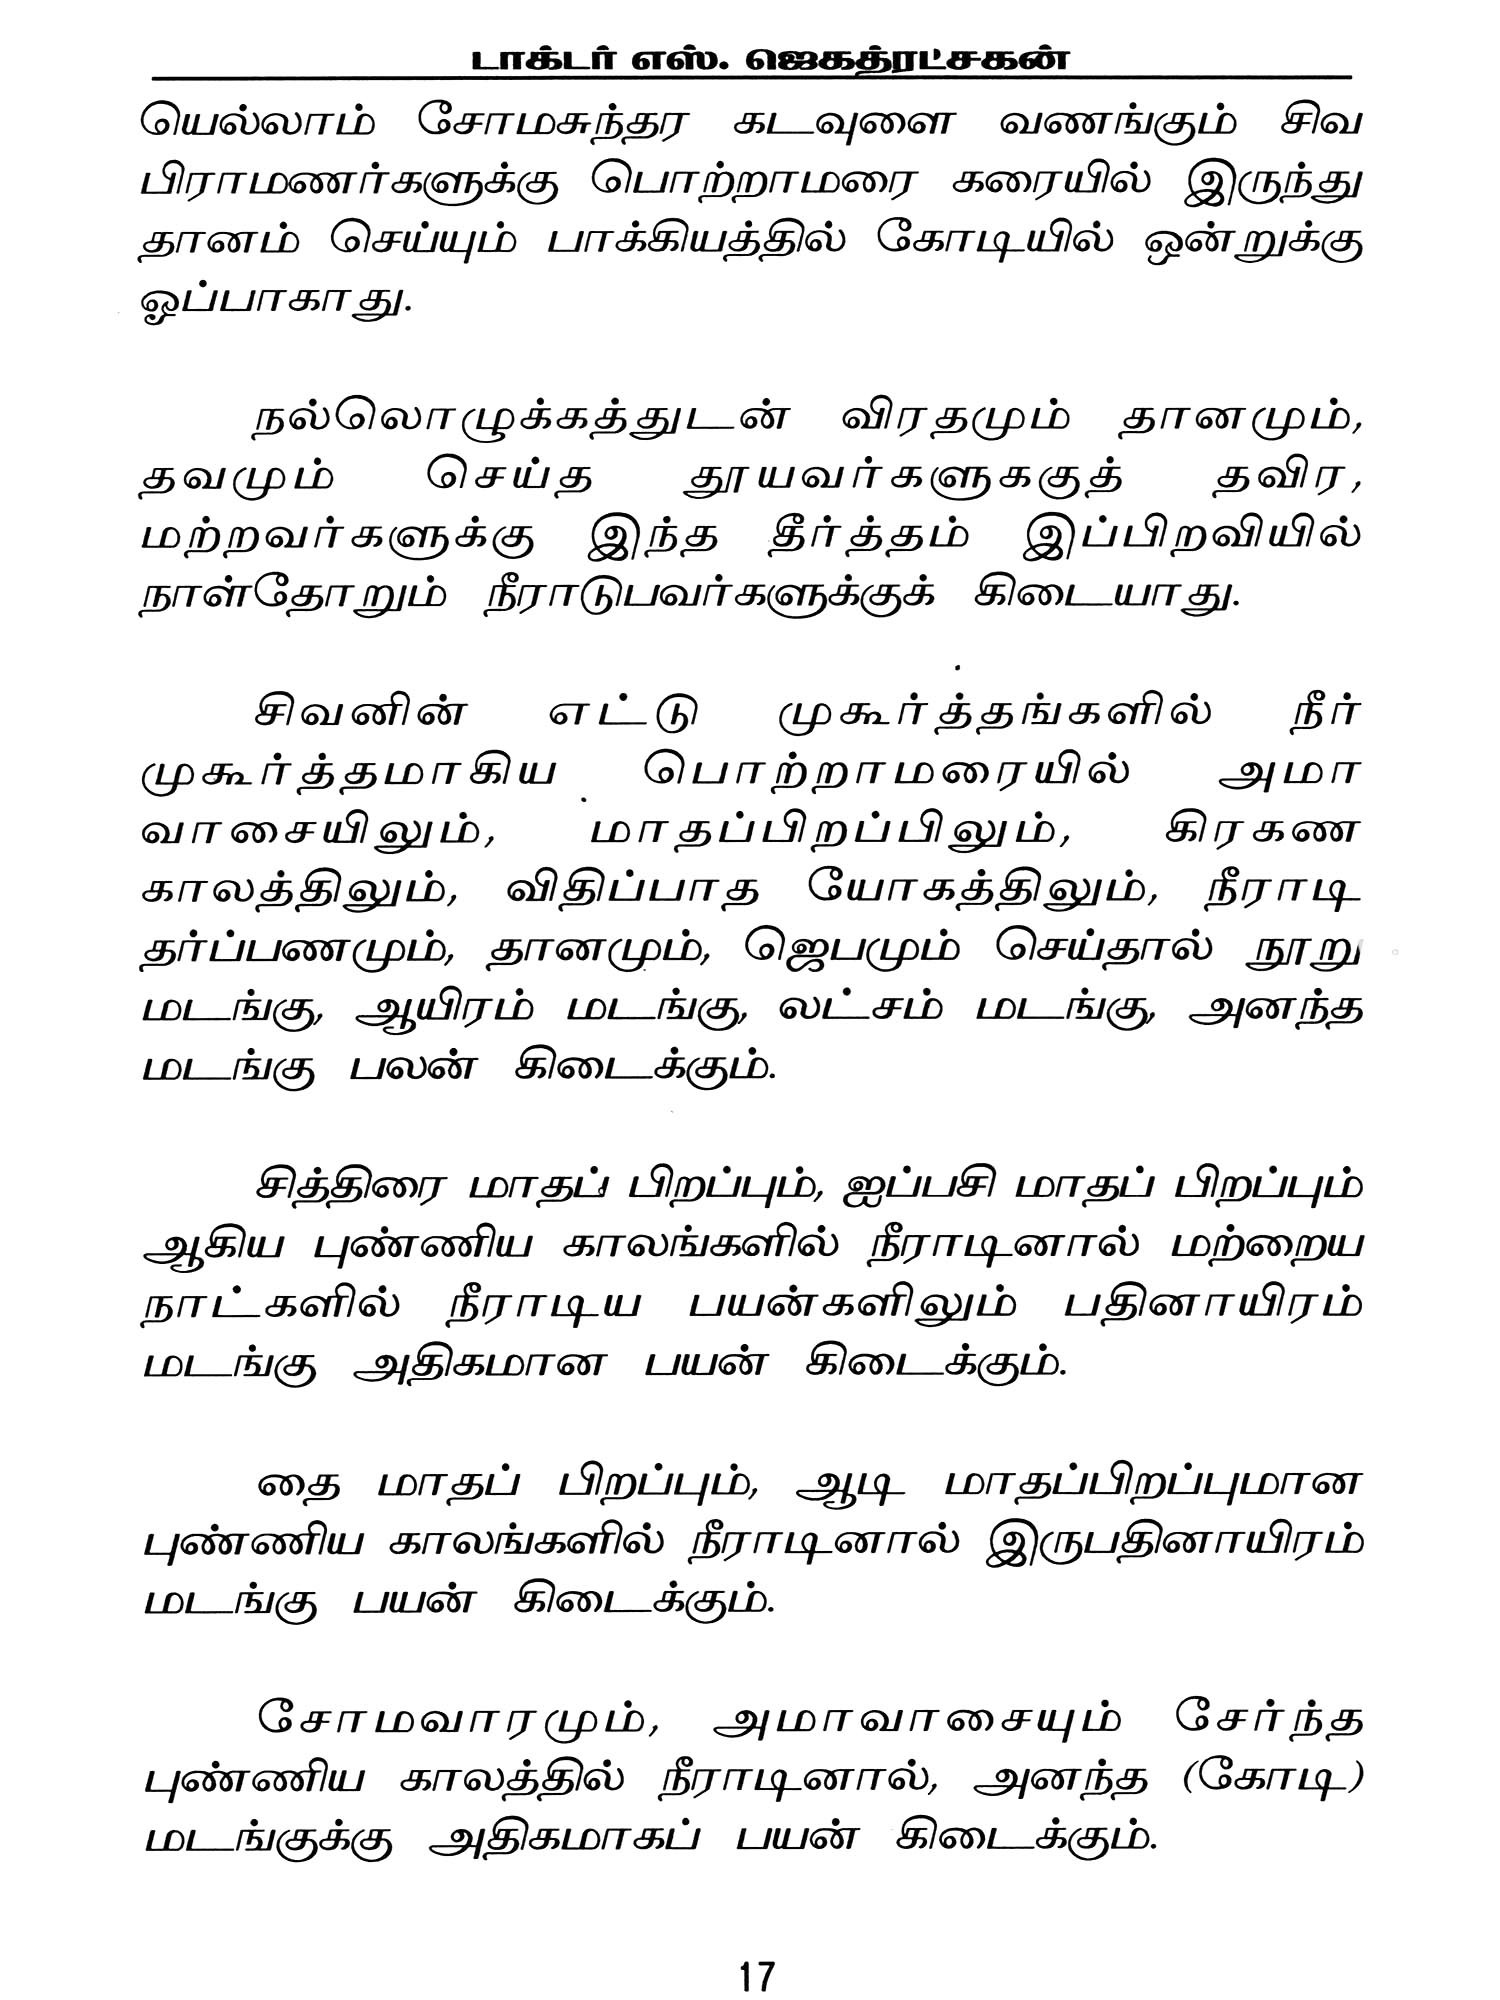 டாக்டர் எஸ். ஜெகத்ரட்சகன்
யெல்லாம் சோமசுந்தர கடவுளை வணங்கும் சிவ
பிராமணர்களுக்கு பொற்றாமரை கரையில் இருந்து
தானம் செய்யும் பாக்கியத்தில் கோடியில் ஒன்றுக்கு
ஓப்பாகாது.
நல்லொழுக்கத்துடன் விரதமும் தானமும்,
தவமும் செய்த தூயவர்களுககுத் தவிர,
மற்றவர்களுக்கு இந்த தீர்த்தம் இப்பிறவியில்
நாள்தோறும் நீராடுபவர்களுக்குக் கிடையாது.
சிவனின் எட்டு முகூர்த்தங்களில் நீர்
முகூர்த்தமாகிய பொற்றாமரையில் அமா
வாசையிலும், மாதப்பிறப்பிலும், கிரகண
காலத்திலும், விதிப்பாத யோகத்திலும், நீராடி
தர்ப்பணமும், தானமும், ஜெபமும் செய்தால் நூறு
மடங்கு, ஆயிரம் மடங்கு, லட்சம் மடங்கு, அனந்த
மடங்கு பலன் கிடைக்கும்.
சித்திரை மாதப் பிறப்பும், ஐப்பசி மாதப் பிறப்பும்
ஆகிய புண்ணிய காலங்களில் நீராடினால் மற்றைய
நாட்களில் நீராடிய பயன்களிலும் பதினாயிரம்
மடங்கு அதிகமான பயன் கிடைக்கும்.
தை மாதப் பிறப்பும், ஆடி மாதப்பிறப்புமான
புண்ணிய காலங்களில் நீராடினால் இருபதினாயிரம்
மடங்கு பயன் கிடைக்கும்.
சோமவாரமும், அமாவாசையும் சேர்ந்த
புண்ணிய காலத்தில் நீராடினால், அனந்த (கோடி)
மடங்குக்கு அதிகமாகப் பயன் கிடைக்கும்.
17